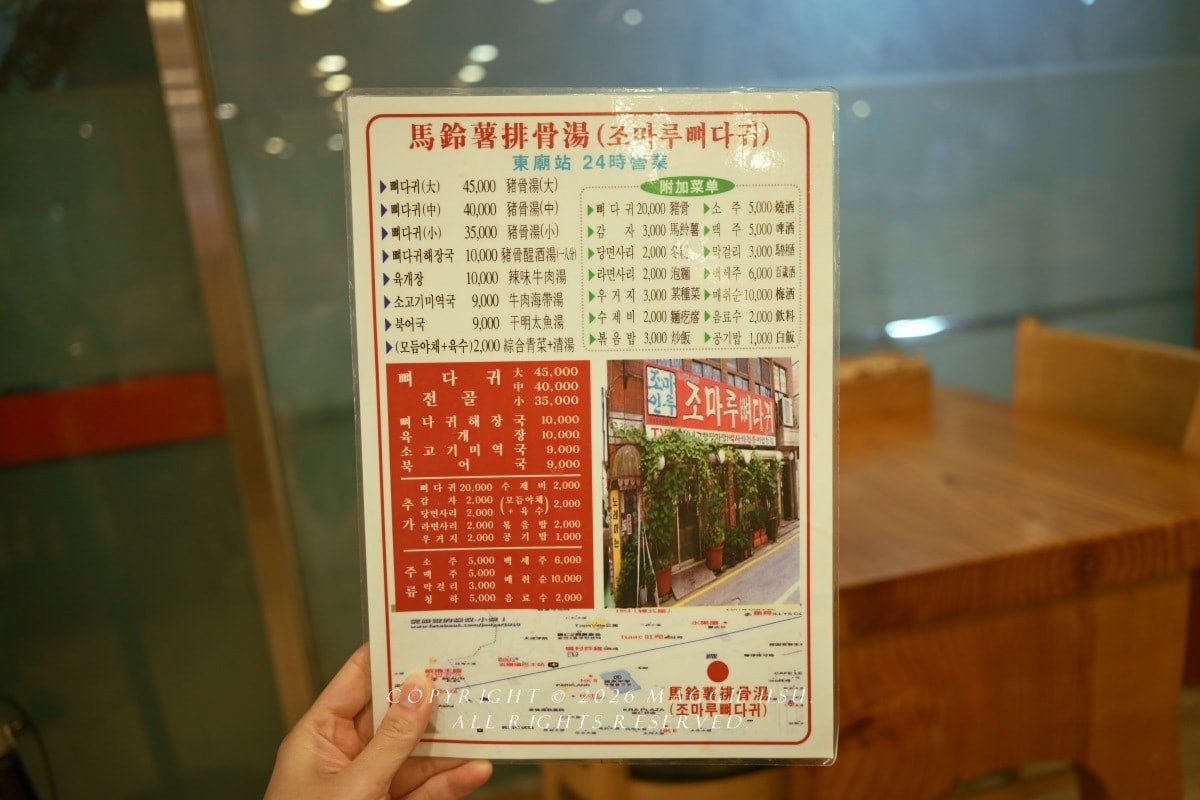 馬鈴薯排骨湯(조마루뼈다귀)
東廟站 24時營業
뼈다귀(大) 45,000 豬骨湯(大)
뼈다귀(中) 40,000 豬骨湯(中)
뼈다귀(小) 35,000 豬骨湯(小)
뼈다귀해장국 10,000 豬骨醒酒湯(一人份)
육개장 10,000 辣味牛肉湯
소고기미역국 9,000 牛肉海帶湯
북어국 9,000 干明太魚湯
(모듬야채+육수) 2,000 綜合青菜+清湯
附加菜单
뼈다귀 20,000 豬骨
감자 3,000 馬鈴薯
당면사리 2,000 冬粉
라면사리 2,000 泡麵
우거지 3,000 某種菜
수제비 2,000 麵疙瘩
볶음밥 3,000 炒飯
소주 5,000 燒酒
맥주 5,000 啤酒
막걸리 3,000
백세주 6,000 百歲酒
매취순 10,000 梅酒
음료수 2,000 飲料
공기밥 1,000 白飯
뼈다귀전골 大 45,000
中 40,000
小 35,000
뼈다귀해장국 10,000
육개장 10,000
소고기미역국 9,000
북어국 9,000
추가
뼈다귀 20,000 수제비 2,000
감자 2,000 (모듬야채+육수) 2,000
당면사리 2,000
라면사리 2,000 볶음밥 2,000
우거지 2,000 공기밥 1,000
주류
소주 5,000 백세주 6,000
맥주 5,000 매취순 10,000
막걸리 3,000
청하 5,000 음료수 2,000
조마루뼈다귀
노래하는
Isaac 吐司
PARKLAND
馬鈴薯排骨湯
(조마루뼈다귀)
COPYRIGHT © 2026
ALL RIGHTS RESERVED.